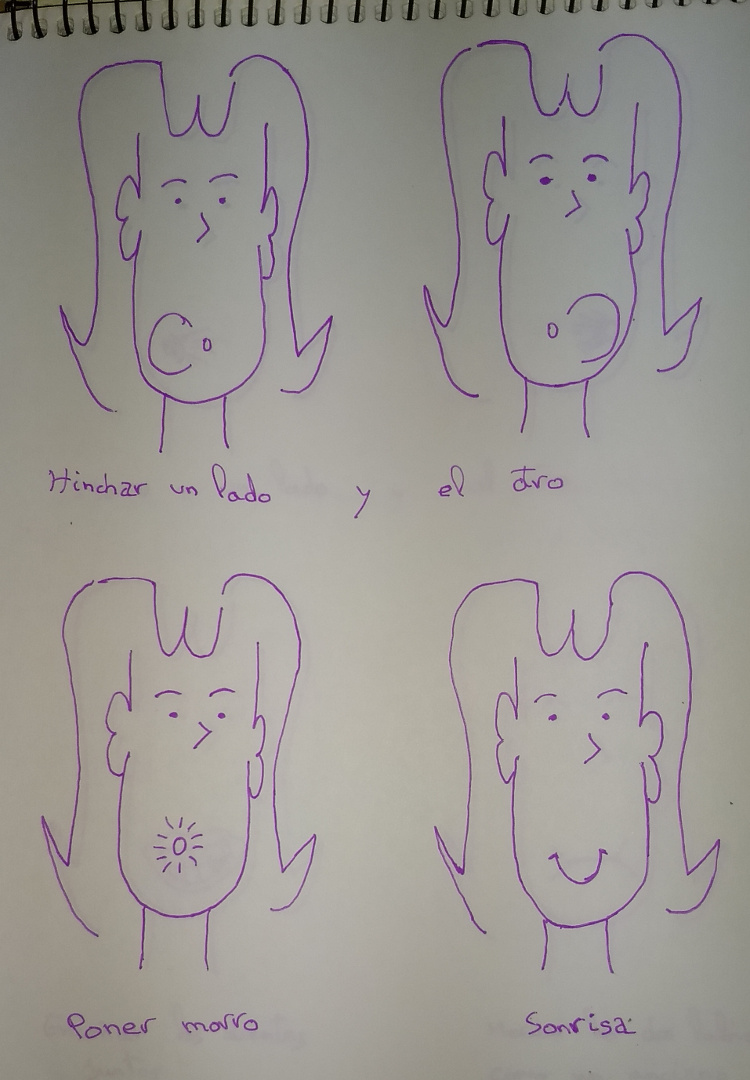 Hinchar un lado y el otro
Poner morro
Sonrisa